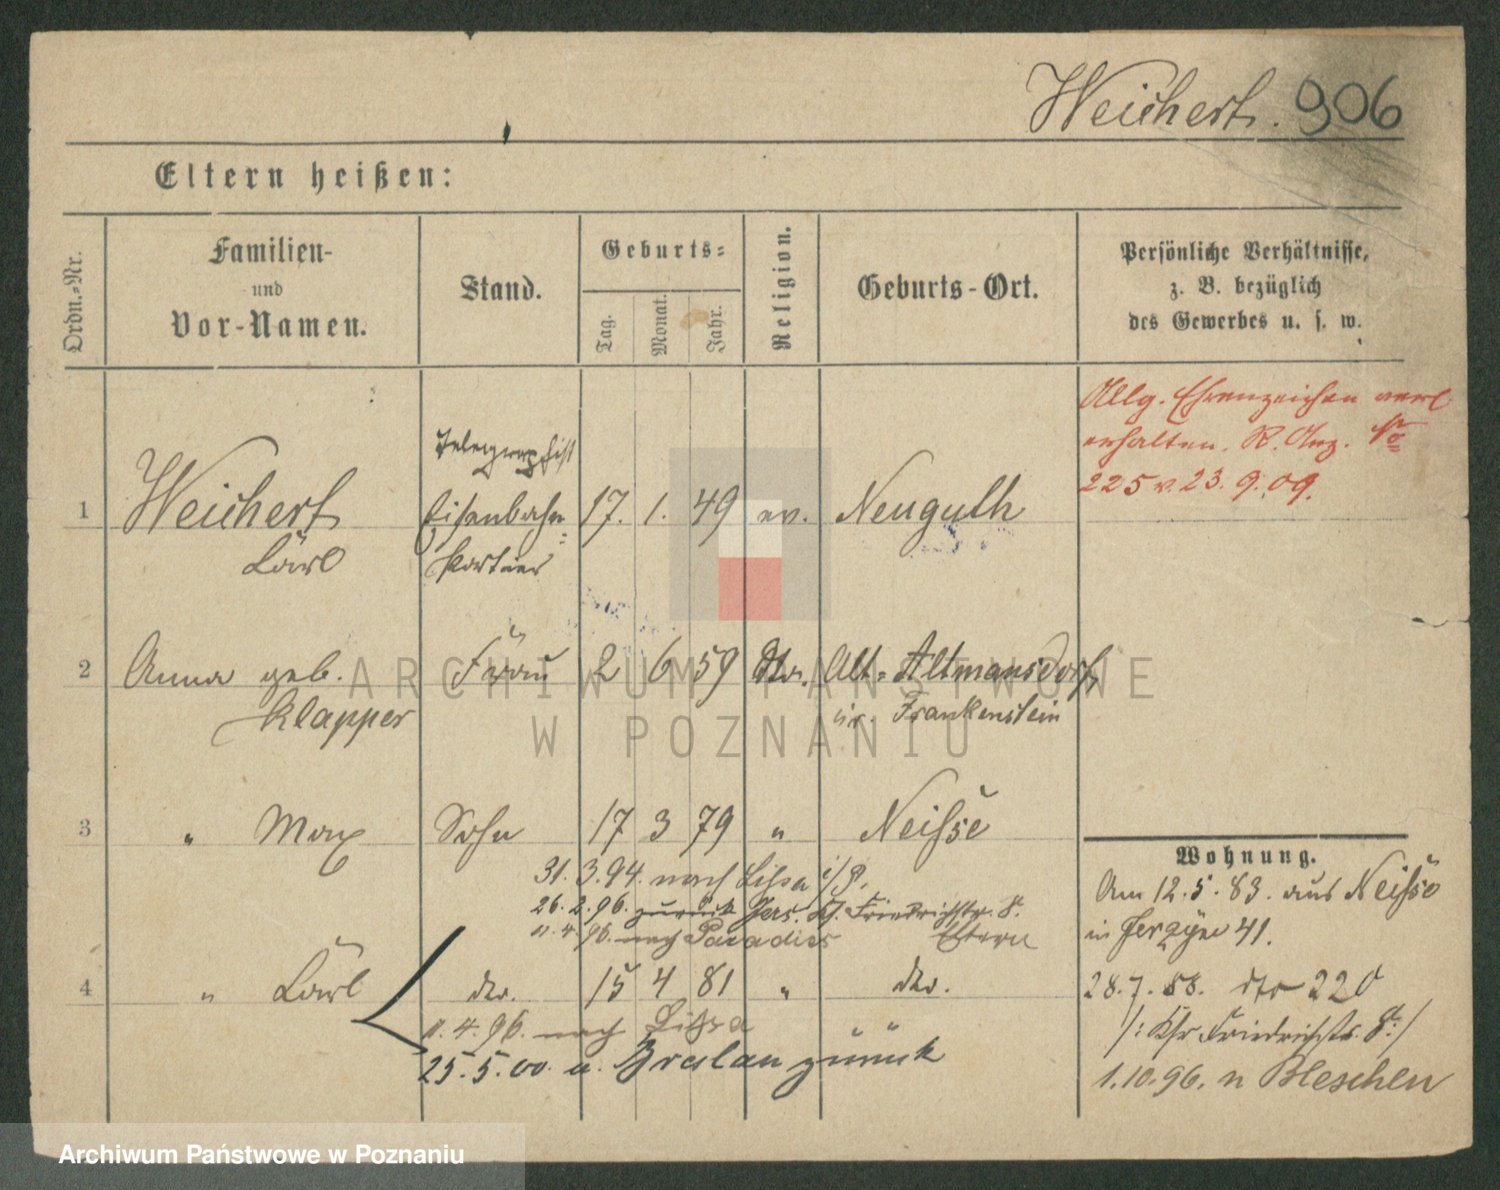 Weichert. 906
Eltern heißen:
Ordn.-Nr.
Familien-
und
Vor-Namen.
Stand.
Geburts-
Tag.
Monat.
Jahr.
Religion.
Geburts-Ort.
Persönliche Verhältnisse,
z. B. bezüglich
des Gewerbes u. s. w.
Allg. Ehrenzeichen
erhalten. R. Anz. No
225 v. 23. 9. 09.
Telegraphist
1 Weichert Eisenbahn- 17. 1. 49 ev. Neuguth
Carl
2 Anna geb. Frau 2 6 59 Alt-Altmansdorf
Klapper Kr. Frankenstein
3 " Max Sohn 17 3 79 " Neisse
31. 3. 94. nach Lissa i/P.
26. 2. 96. zurück Jers. Kf. Friedrichstr. 8.
11. 4. 96. nach Paradies Eltern
4 " Carl dto. 15 4 81 " dto.
11. 4. 96. nach Lissa
25. 5. 00. v. Breslau zurück
Wohnung.
Am 12. 5. 83. aus Neisse
in Jerzyce 41.
28. 7. 88. dto 220
/: Kfr Friedrichstr. 8 :/
1. 10. 96. n Pleschen
ARCHIWUM PAŃSTWOWE
W POZNANIU
Archiwum Państwowe w Poznaniu